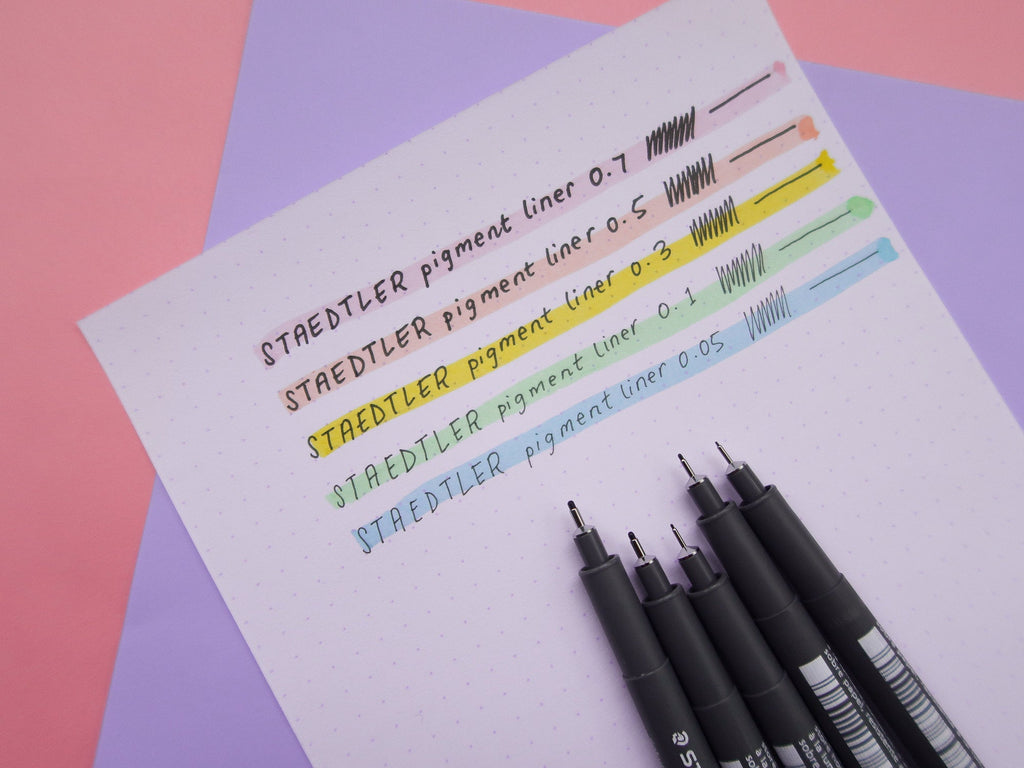 STAEDTLER pigment liner 0.7
STAEDTLER pigment liner 0.5
STAEDTLER pigment liner 0.3
STAEDTLER pigment liner 0.1
STAEDTLER pigment liner 0.05
sobre papel